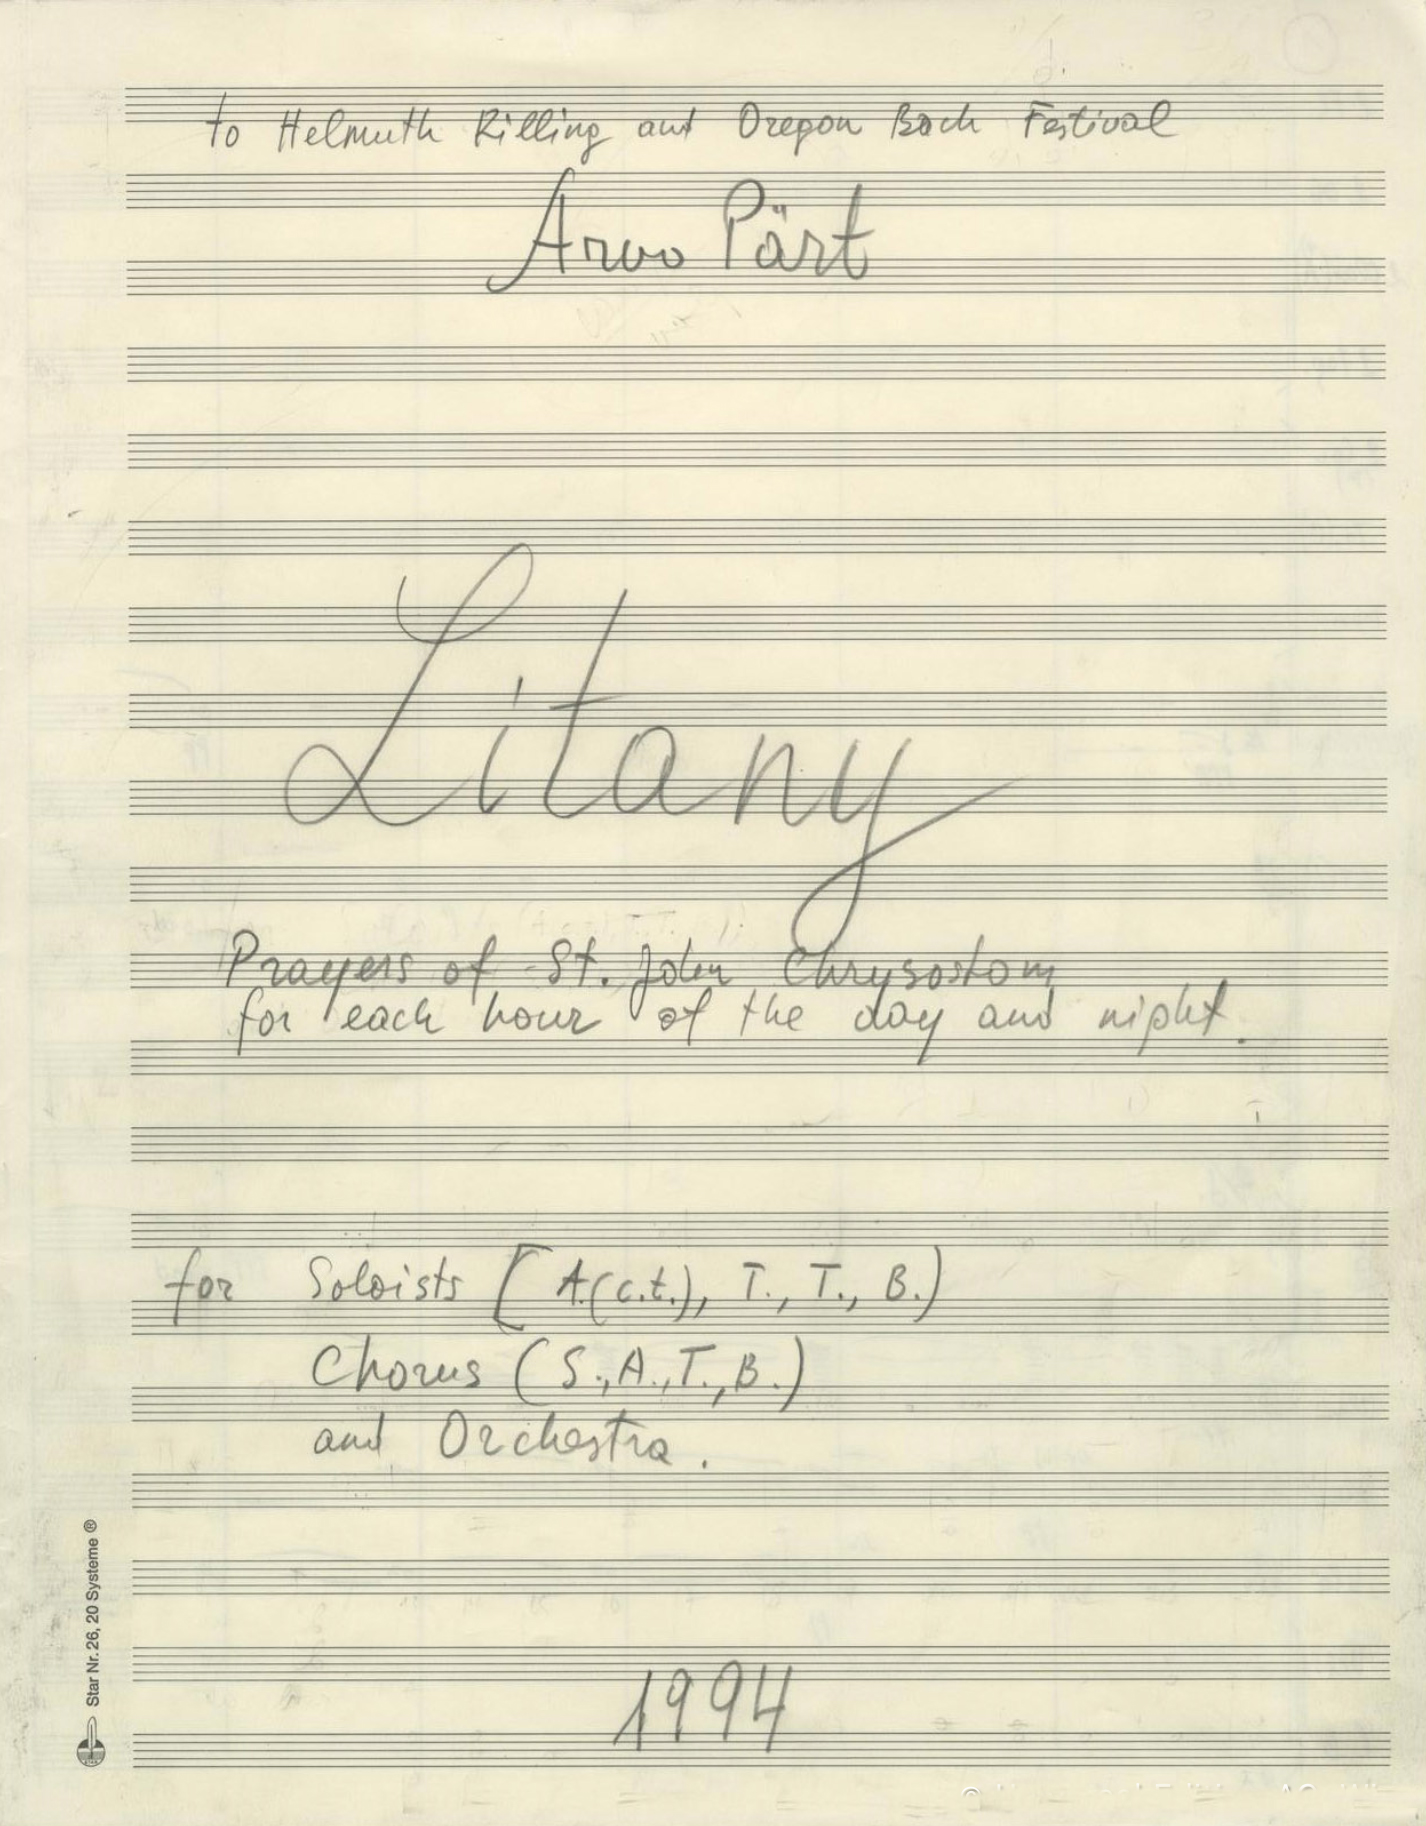 to Helmuth Rilling and Oregon Bach Festival
Arvo Pärt
Litany
Prayers of St. John Chrysostom
for each hour of the day and night.
for Soloists [A.(c.t.), T., T., B.)
Chorus (S., A., T., B.)
and Orchestra.
1994
Star Nr. 26, 20 Systeme ®